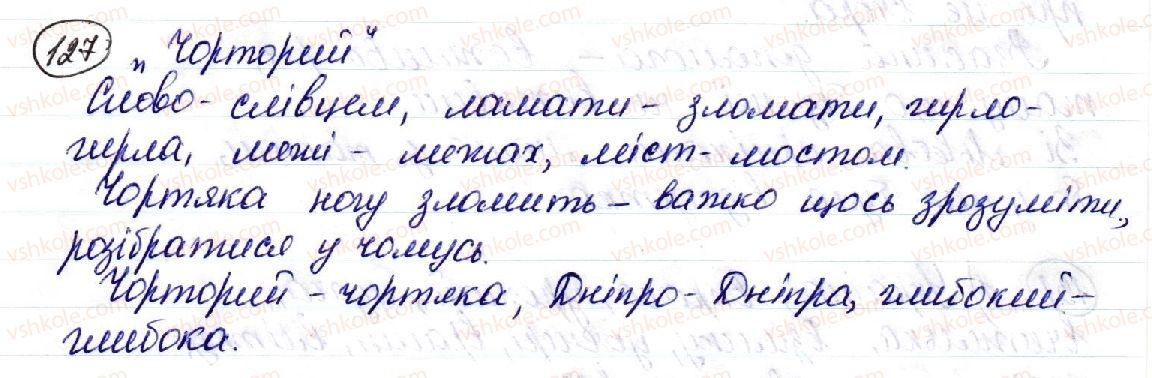 127 „Чорторий"
Слово - слівцем, ламати - зломати, гирло -
гирла, межі - межах, міст - мостом.
Чортяка ногу зломить - важко щось зрозуміти,
розібратися у чомусь.
Чорторий - чортяка, Дніпро - Дніпра, глибокий -
глибока.